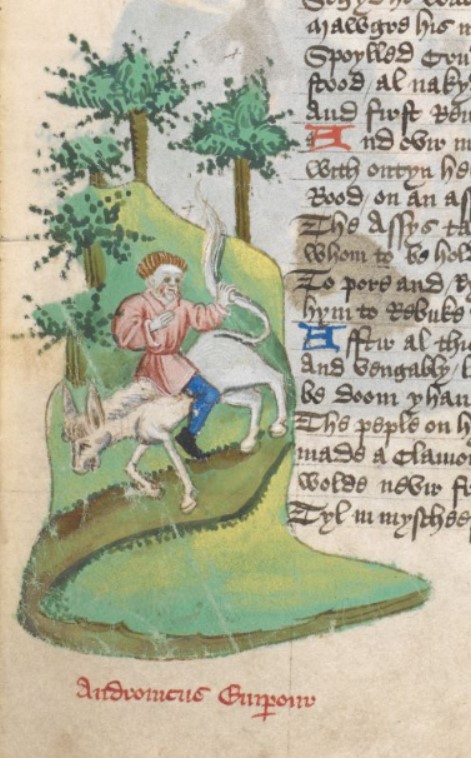 malwgre his
Spoylled
stood / al naky
And first
And ovir
with ontyn he
Rood / on an ass
The Assys ta
whom to be hol
To pore and
hym to Rebuke
Afftir al this
And vengably /
be doom yhau
The peple on h
made a Clamo
wolde nevir
Tyl in myschee
Andronicus Emperour